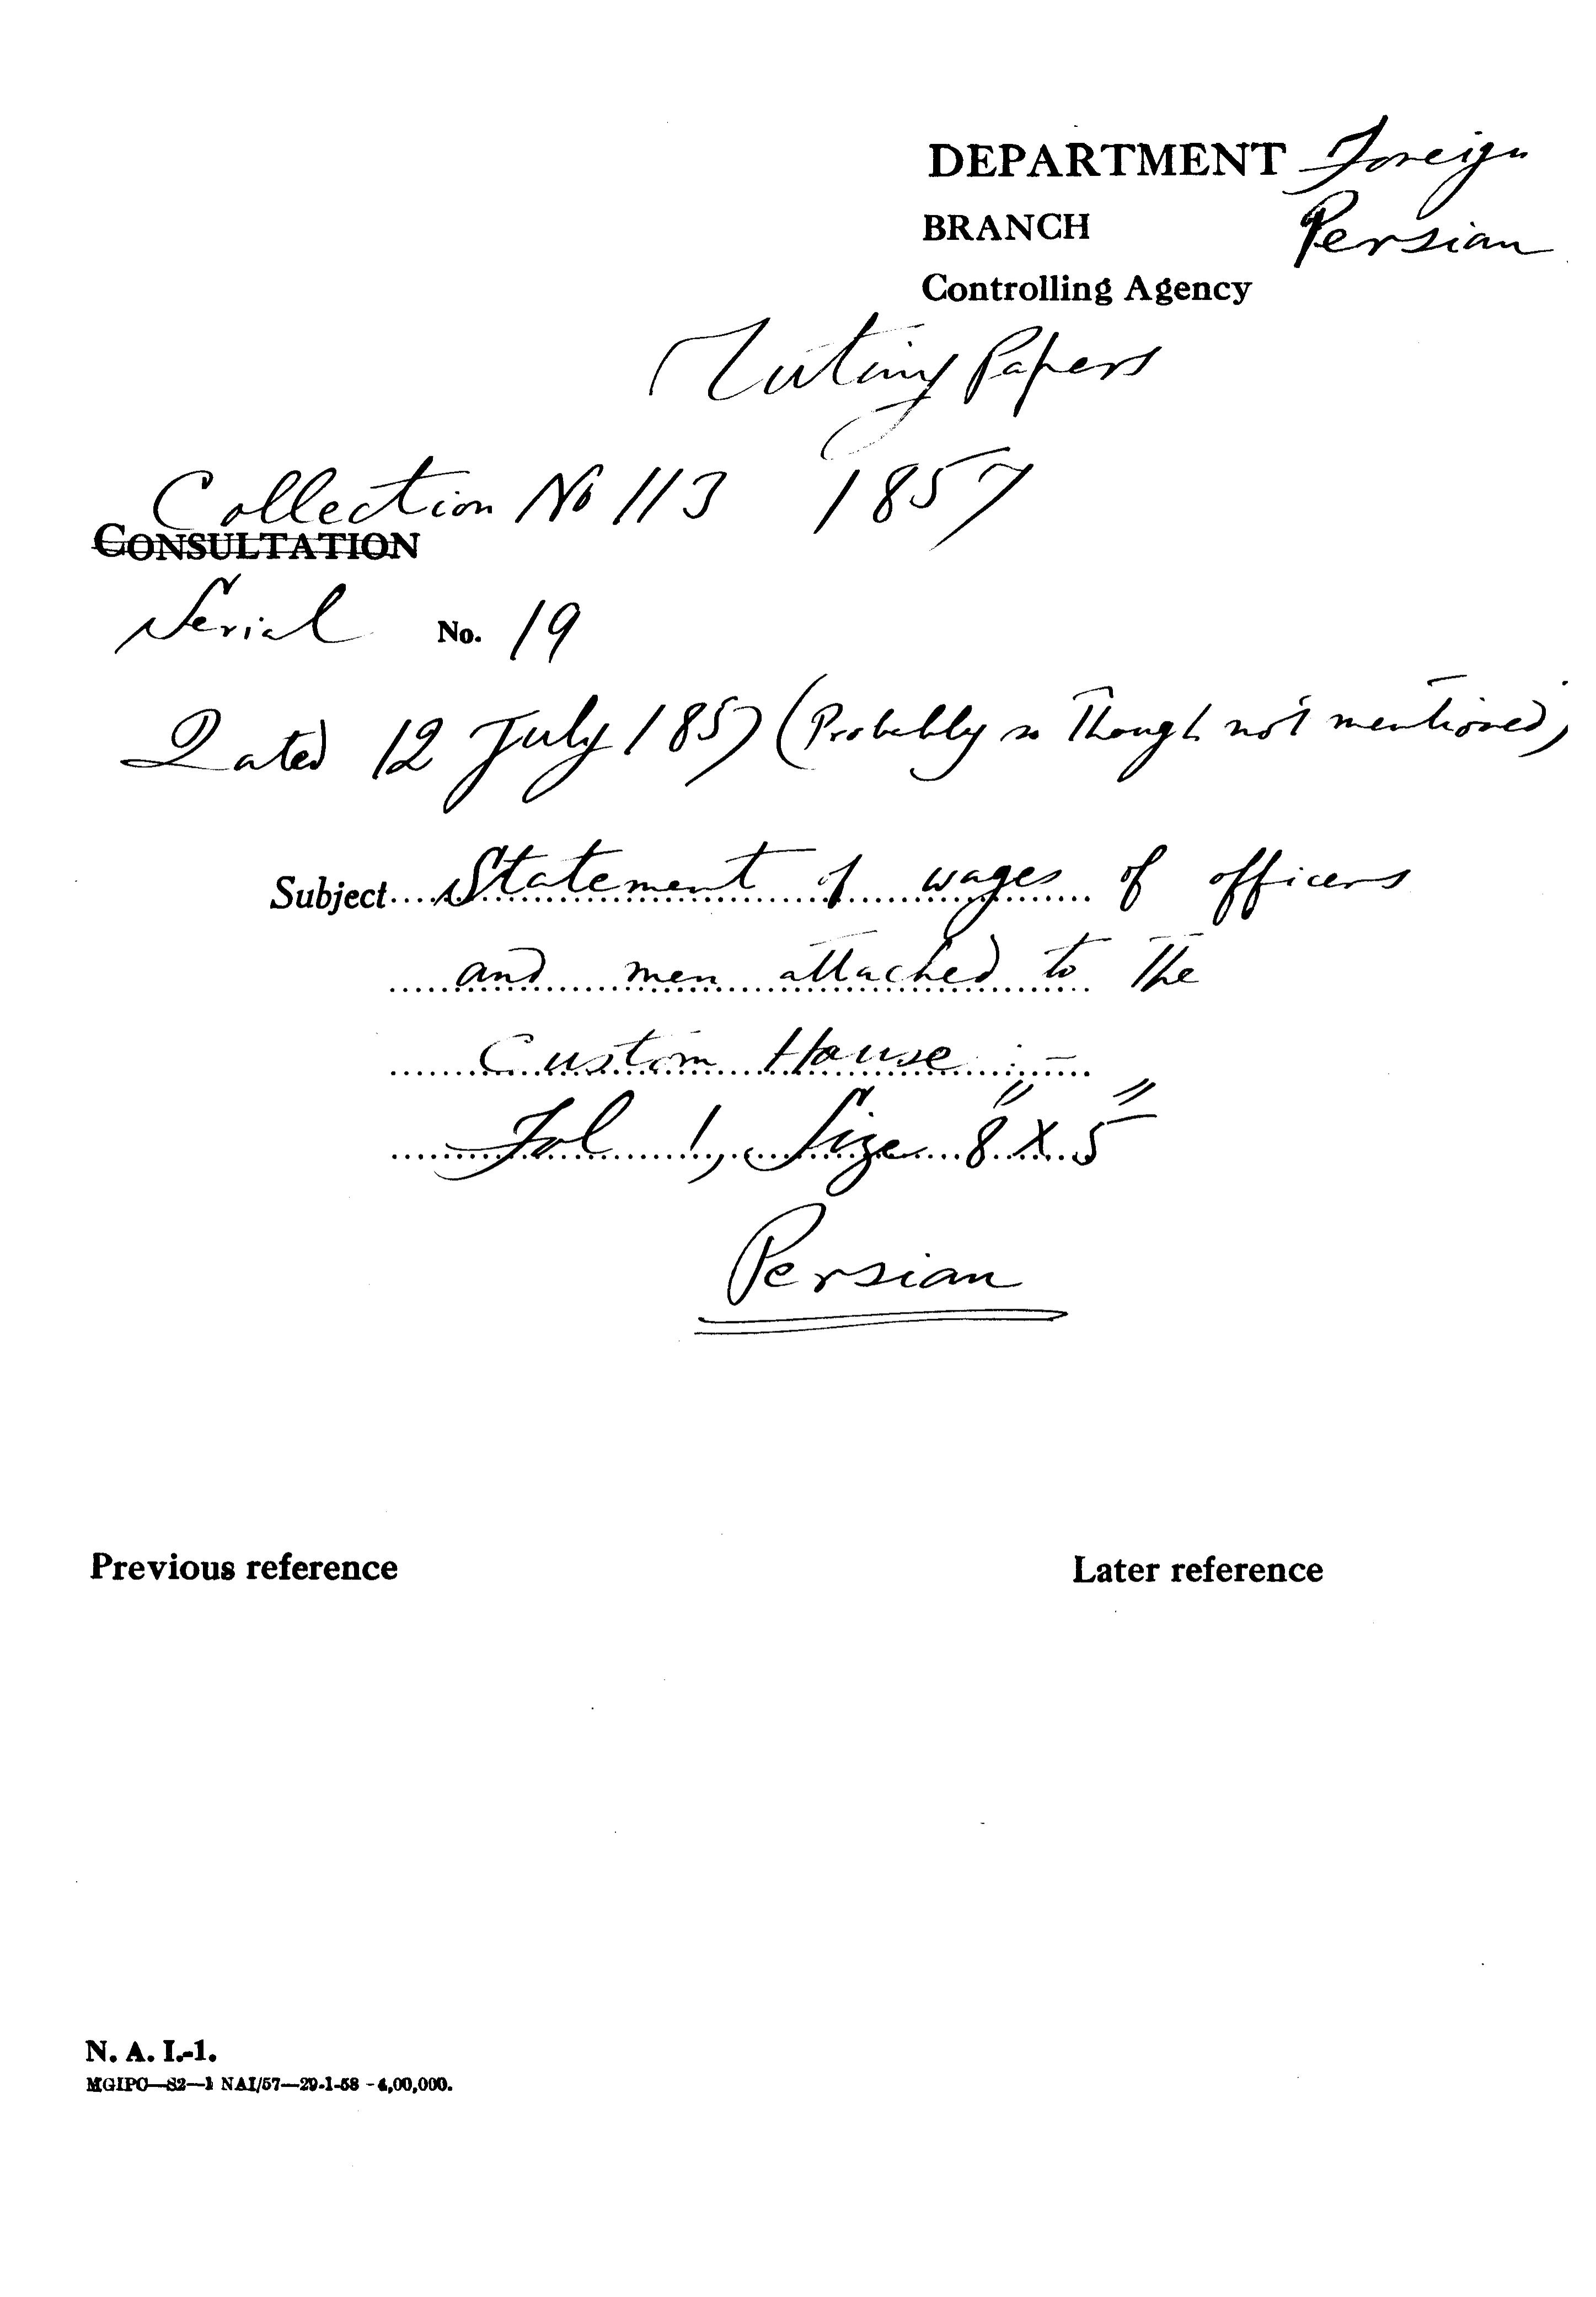 DEPARTMENT Foreign
BRANCH Persian
Controlling Agency
Mutiny Papers
Collection No 113 1857
CONSULTATION
Serial No. 19
Dated 12 July 1857 (Probably so Though not mentioned)
Subject....Statement of wages of officers
and men attached to The
Custom House :-
Fol 1, Size 8" X 5"
Persian
Previous reference Later reference
N. A. I.-1.
MGIPC—S2—1 NAI/57—29-1-58 -4,00,000.